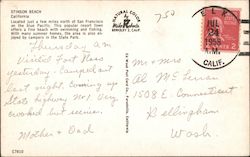 STINSON BEACH
California
Located just a few miles north of San Francisco
on the blue Pacific. This popular resort town
offers a fine beach with swimming and fishing.
With many summer homes, the area is also enjoyed
by campers in the State Park.
NATURAL COLOR
BERKELEY 2, CALIF.
750
ELK
JUL
24
1955
CALIF.
Thursday am
Visited Fort Ross
yesterday. Camped out
last night. Coming up
State highway No 1. Very
crooked but scenic.
Mother & Dad
Mr & Mrs
Al McFerran
1508 E. Connecticut
Bellingham
Wash.
C7810